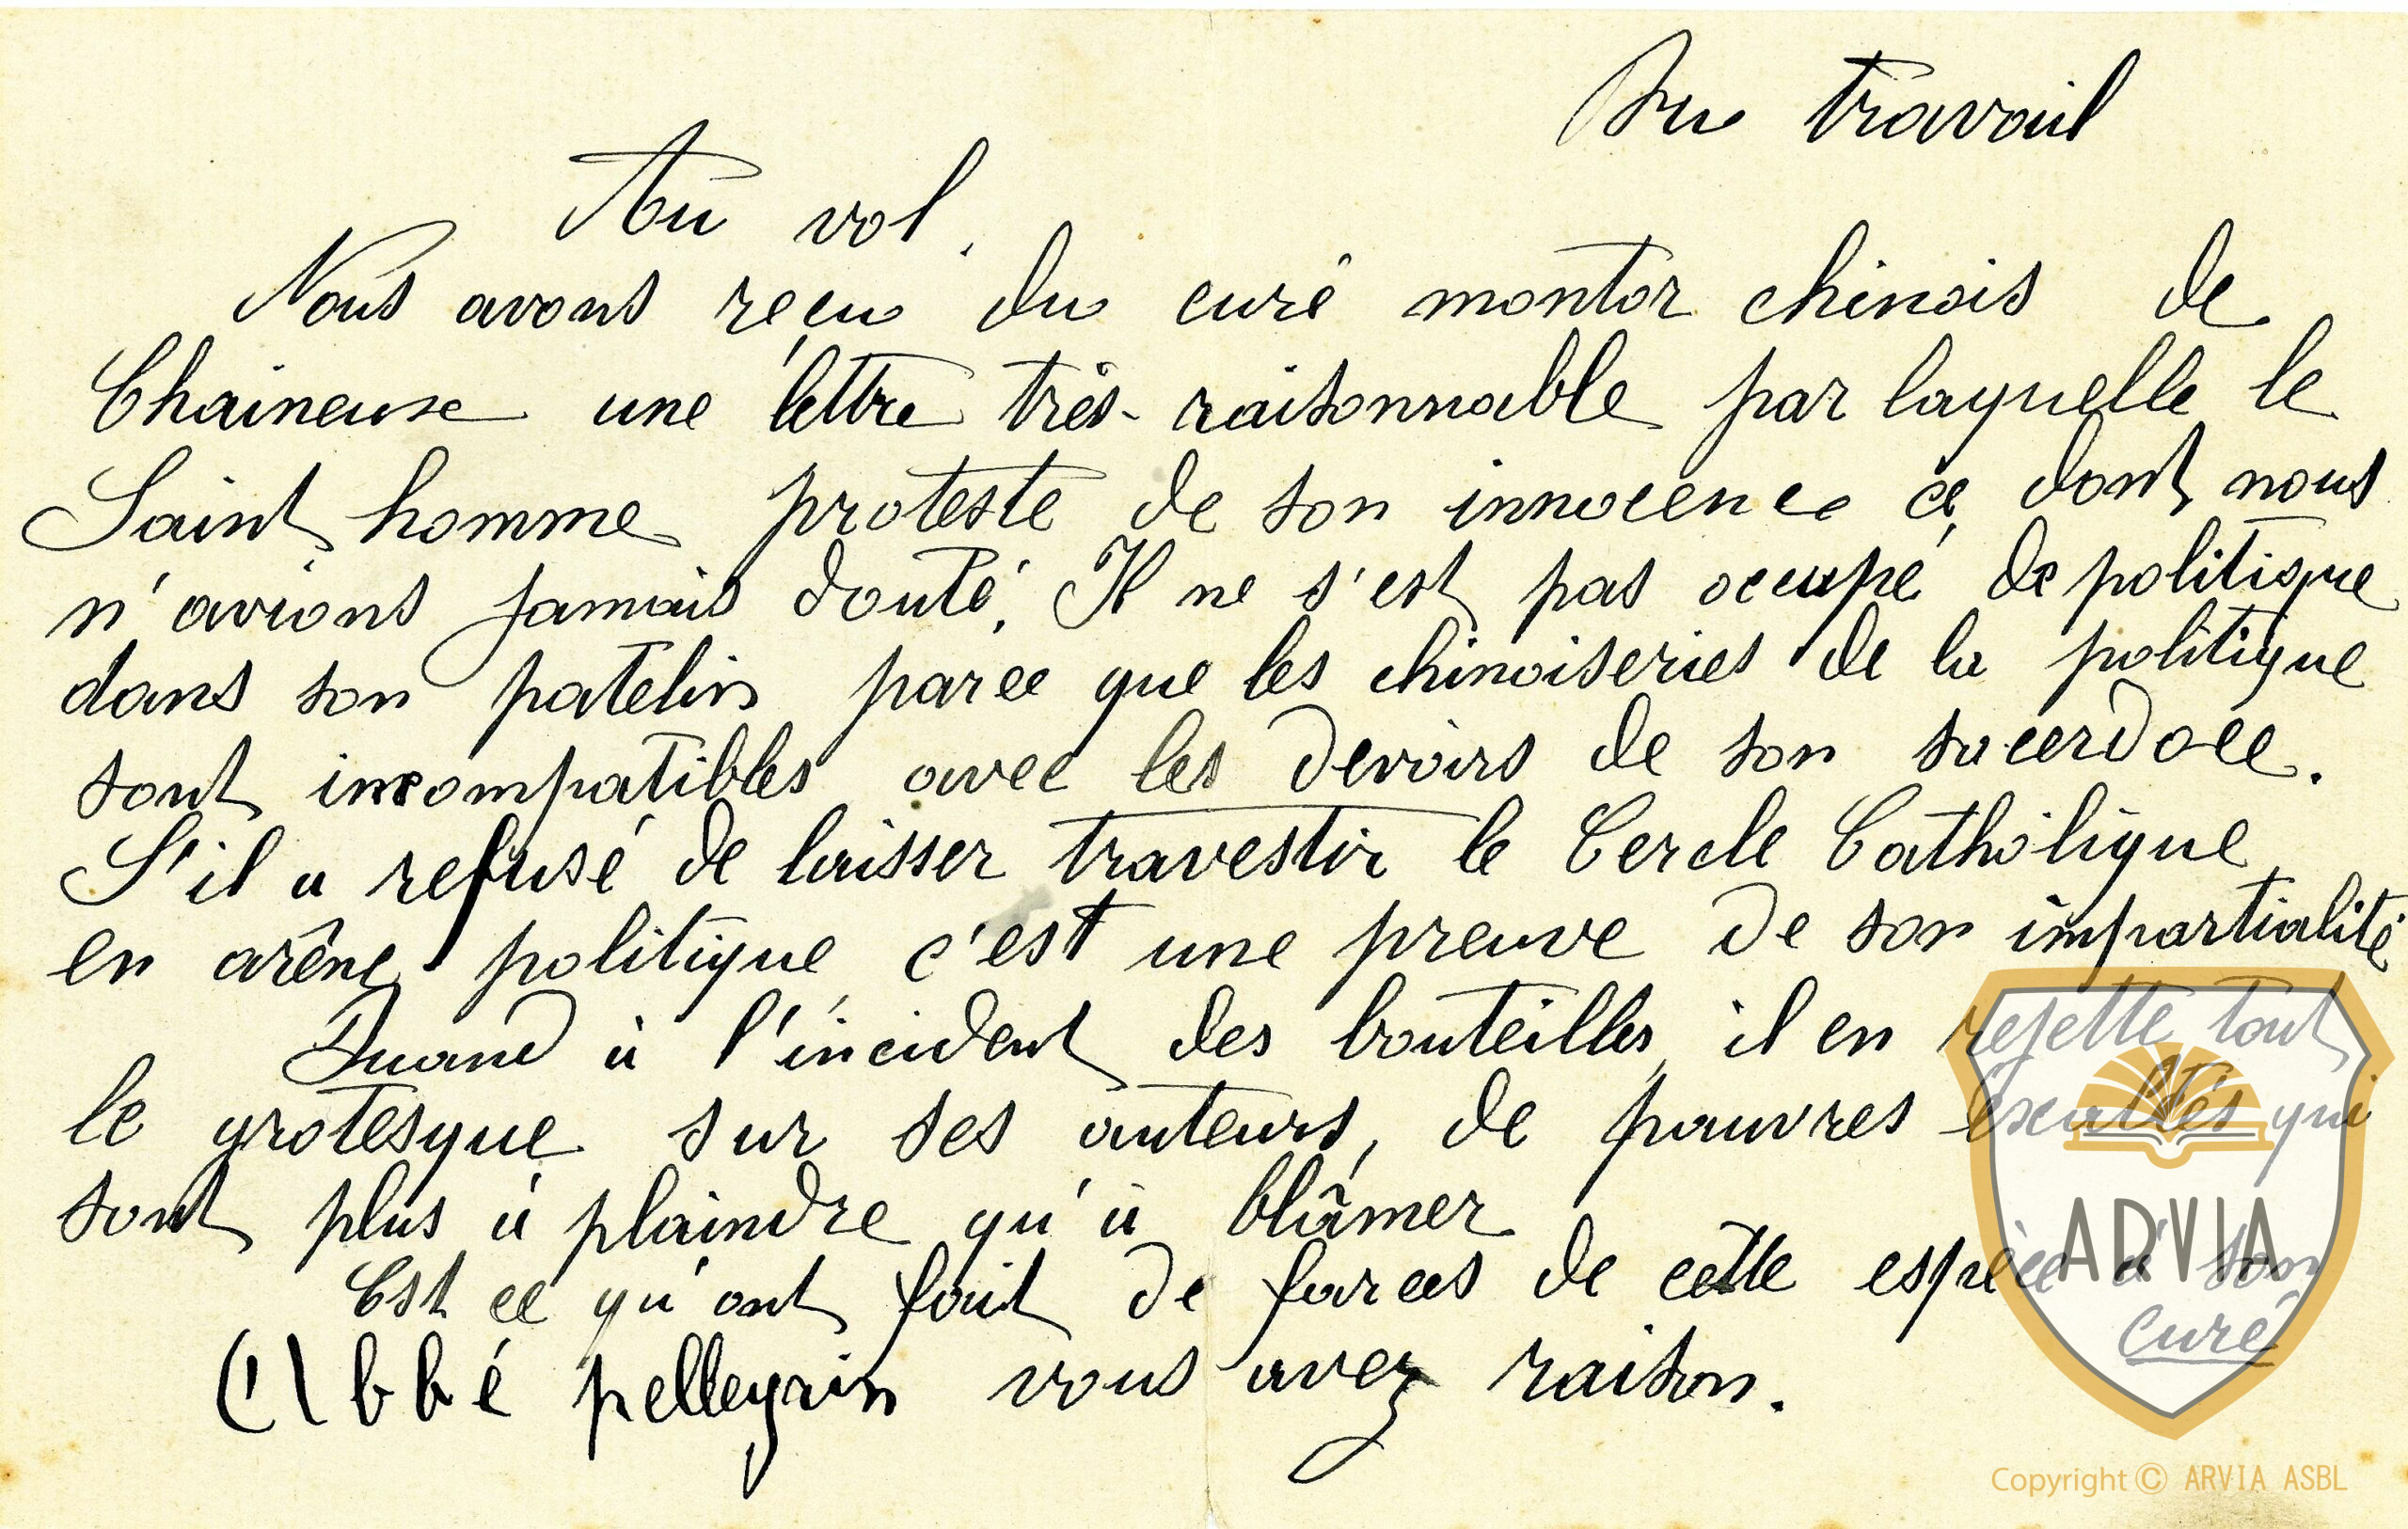 Du travail
Au vol.
Nous avons reçu du curé montor chinois de
Chaineuse une lettre très-raisonnable par laquelle le
Saint homme proteste de son innocence ce dont nous
n'avions jamais douté. Il ne s'est pas occupé de politique
dans son patelin parce que les chinoiseries de la politique
sont incompatibles avec les devoirs de son sacerdoce.
S'il a refusé de laisser travestir le Cercle Catholique
en arêne politique c'est une preuve de son impartialité
Quand à l'incident des bouteilles, il en rejette tout
le grotesque sur ses auteurs, de pauvres exaltés qui
sont plus à plaindre qu'à blâmer
Est ce qu'ont fait de farces de cette espèce à son
curé
Abbé pellegrin vous avez raison.
ARVIA
Copyright © ARVIA ASBL